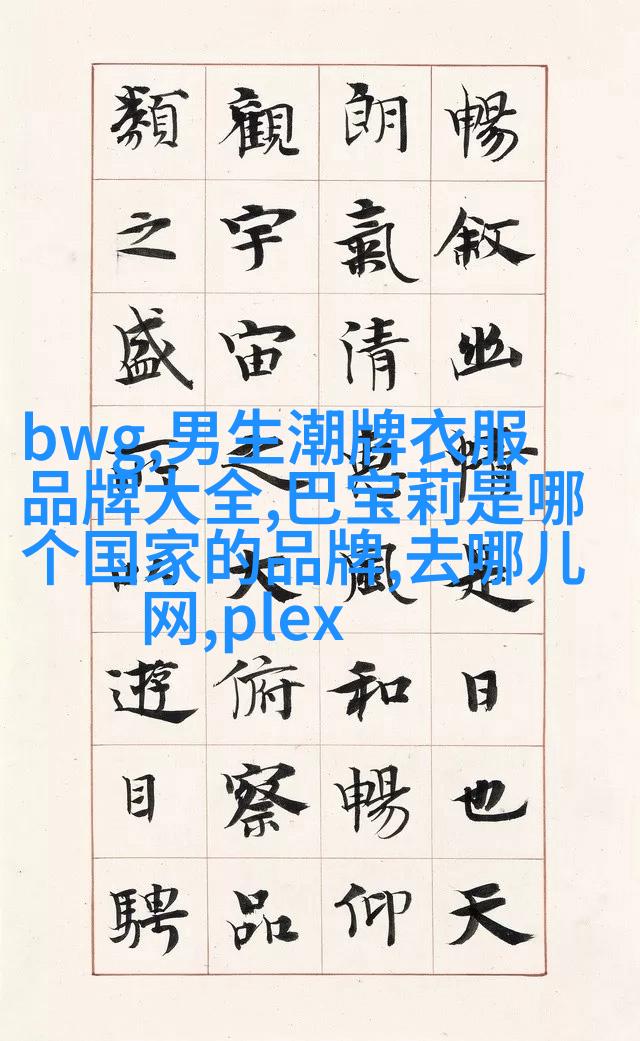 暢敘幽情是日也天
朗氣清惠風和暢仰
觀宇宙之大俯察品
類之盛所以遊目騁
bwg,男生潮牌衣服
品牌大全,巴宝莉是哪
个国家的品牌,去哪儿
网,plex